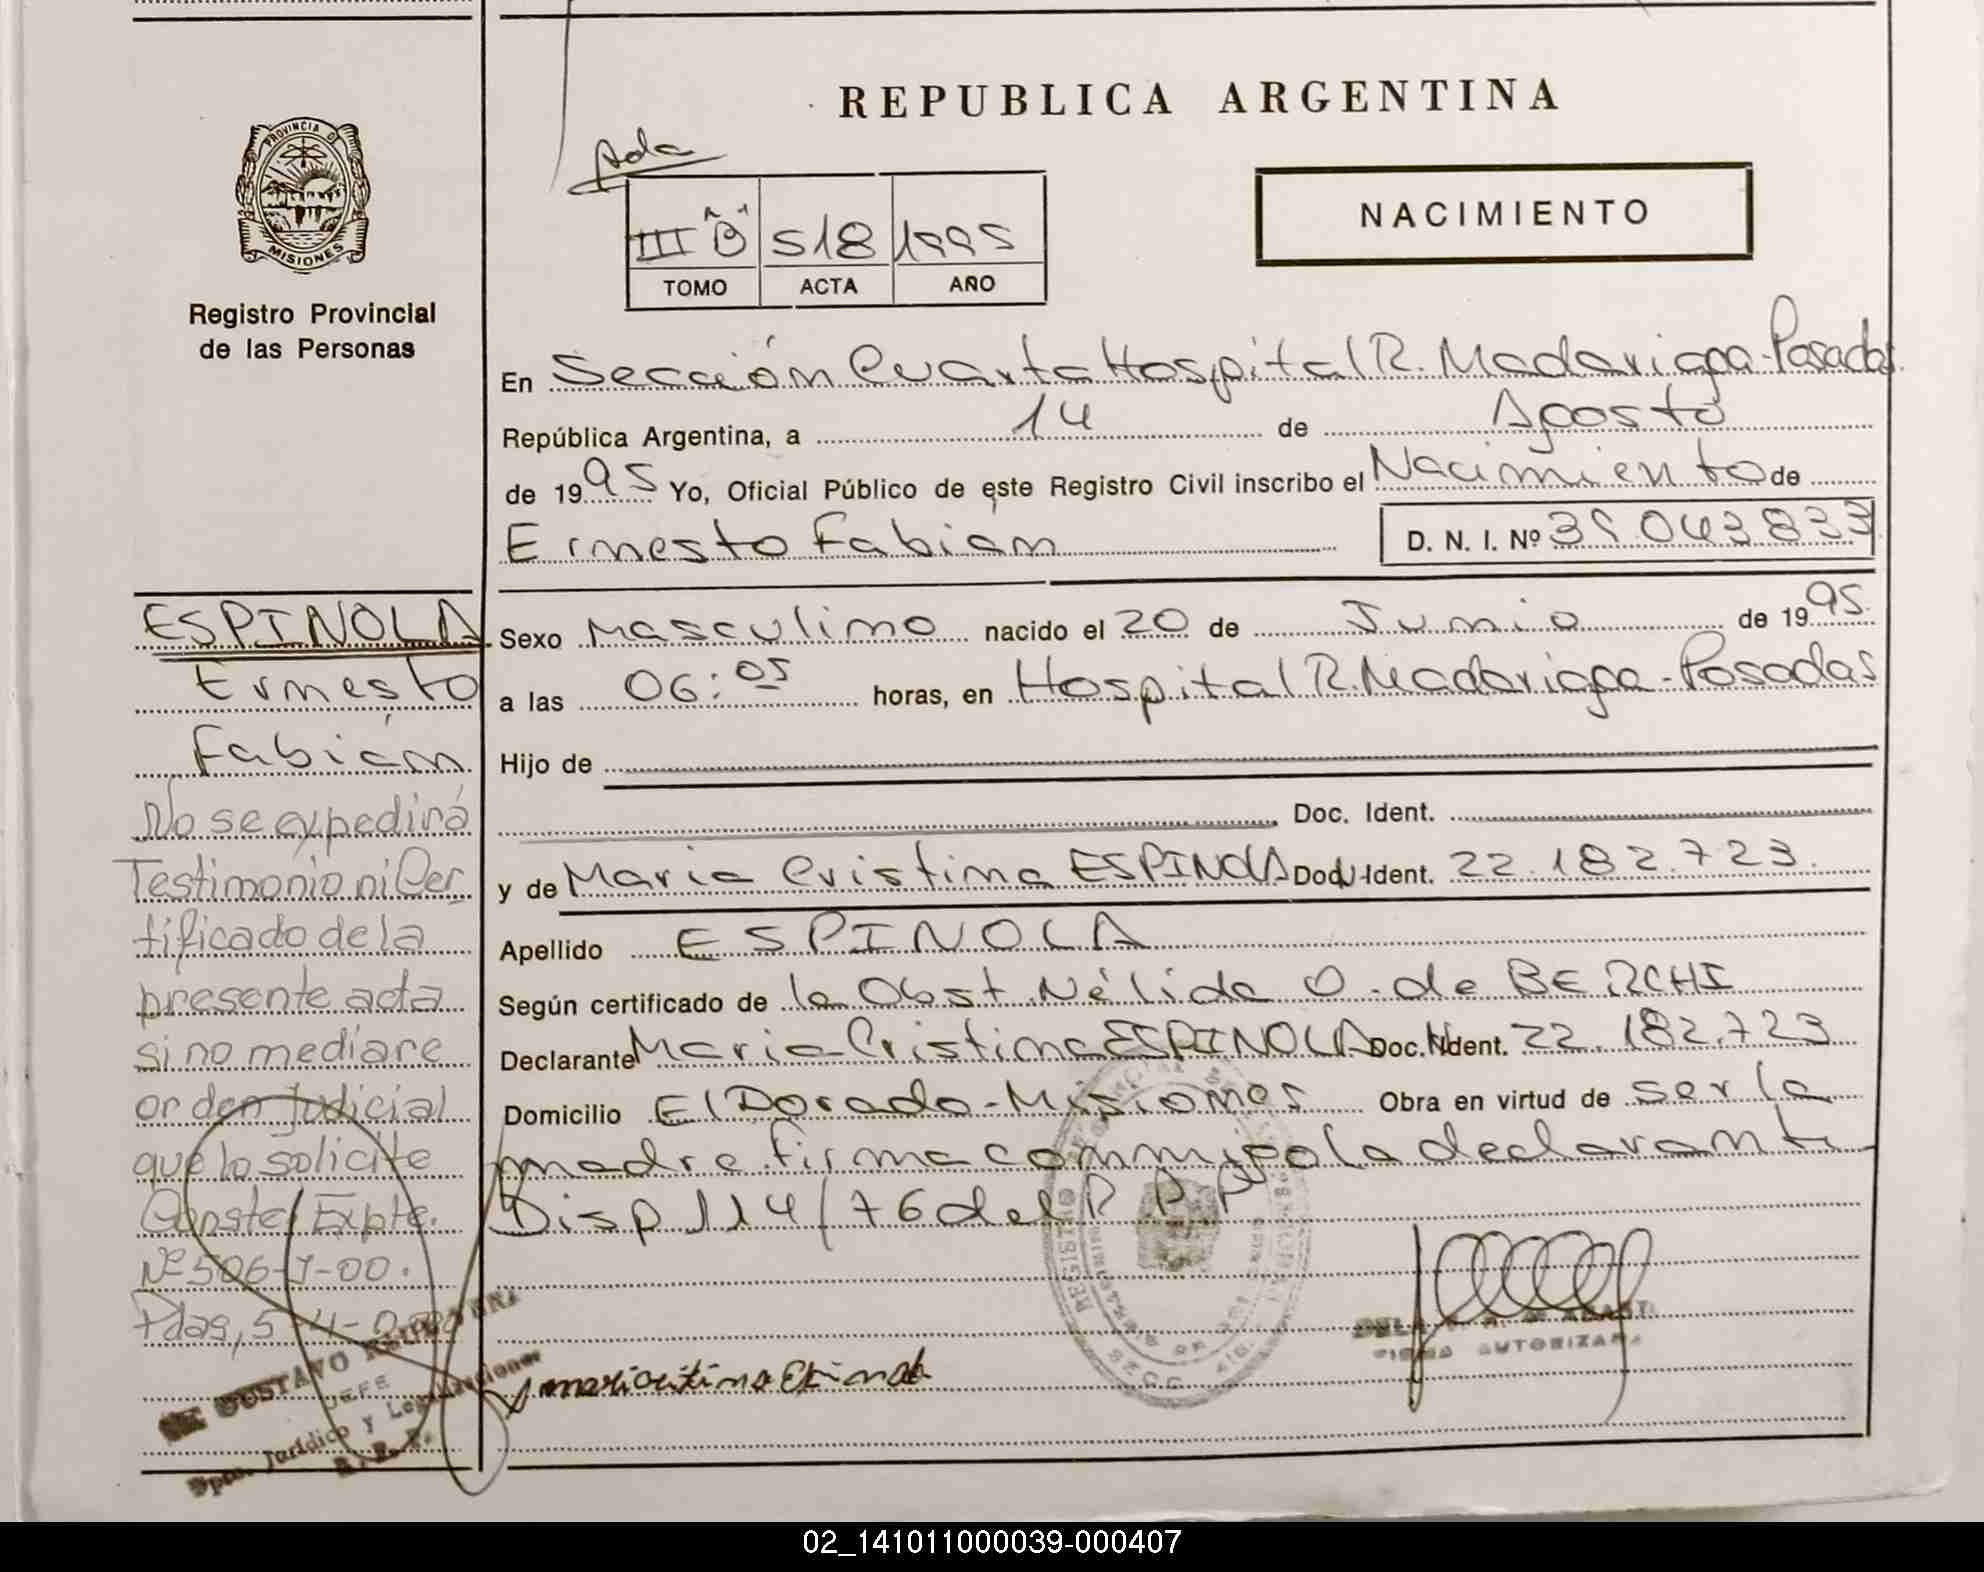 REPUBLICA ARGENTINA
PROVINCIA D
MISIONES
Registro Provincial
de las Personas
NACIMIENTO
III "B" 518 1995
TOMO ACTA AÑO
En Sección Cuarta Hospital R. Madariaga-Posadas
República Argentina, a 14 de Agosto
de 1995 Yo, Oficial Público de este Registro Civil inscribo el Nacimiento de
Ernesto Fabián D. N. I. Nº 39.043.833
Sexo Masculino nacido el 20 de Junio de 1995
a las 06:05 horas, en Hospital R. Madariaga-Posadas
Hijo de
Doc. Ident.
y de Maria Cristina ESPINOLA Doc. Ident. 22.182.723.
Apellido ESPINOLA
Según certificado de la Obst Nélida O. de BERCHI
Declarante Maria Cristina ESPINOLA Doc. Ident. 22.182.723
Domicilio El Dorado-Misiones Obra en virtud de ser la
madre firma conmigo la declarante
Disp 114/76 del R P P
ESPINOLA
Ernesto
Fabián
No se expedirá
Testimonio ni Cer
tificado de la
presente acta
si no mediare
orden Judicial
que lo solicite
Conste Expte.
Nº 506-J-00.
Pdas, 5-4-
GUSTAVO
JEFE
Dpto. Jurídico y Legalizaciones
R. P. P.
FIRMA AUTORIZADA
02_141011000039-000407